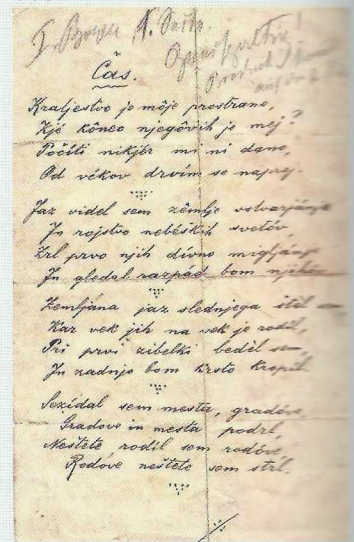 Čas.
Kraljestvo je môje prostrano,
Kjé kônec njegôvih je mej?
Počíti nikjér mi ni dano,
Od vékov drvím se naprej.
Jaz videl sem zêmlje ustvarjánje
In rojstvo nebéških svetóv
Zrl prvo njih dívno migljánje
In gledal razpàd bom njihóv
Zemljána jaz slednjega štèl
Kar vek jih na vek je rodíl,
Pri prvi zibelki bedèl sem,
In zadnjo bom krsto kropíl.
Sezídal sem mesta, gradóve,
Gradove in mesta podrl,
Neštéte rodíl sem rodóve,
Rodóve neštéte sem strl.